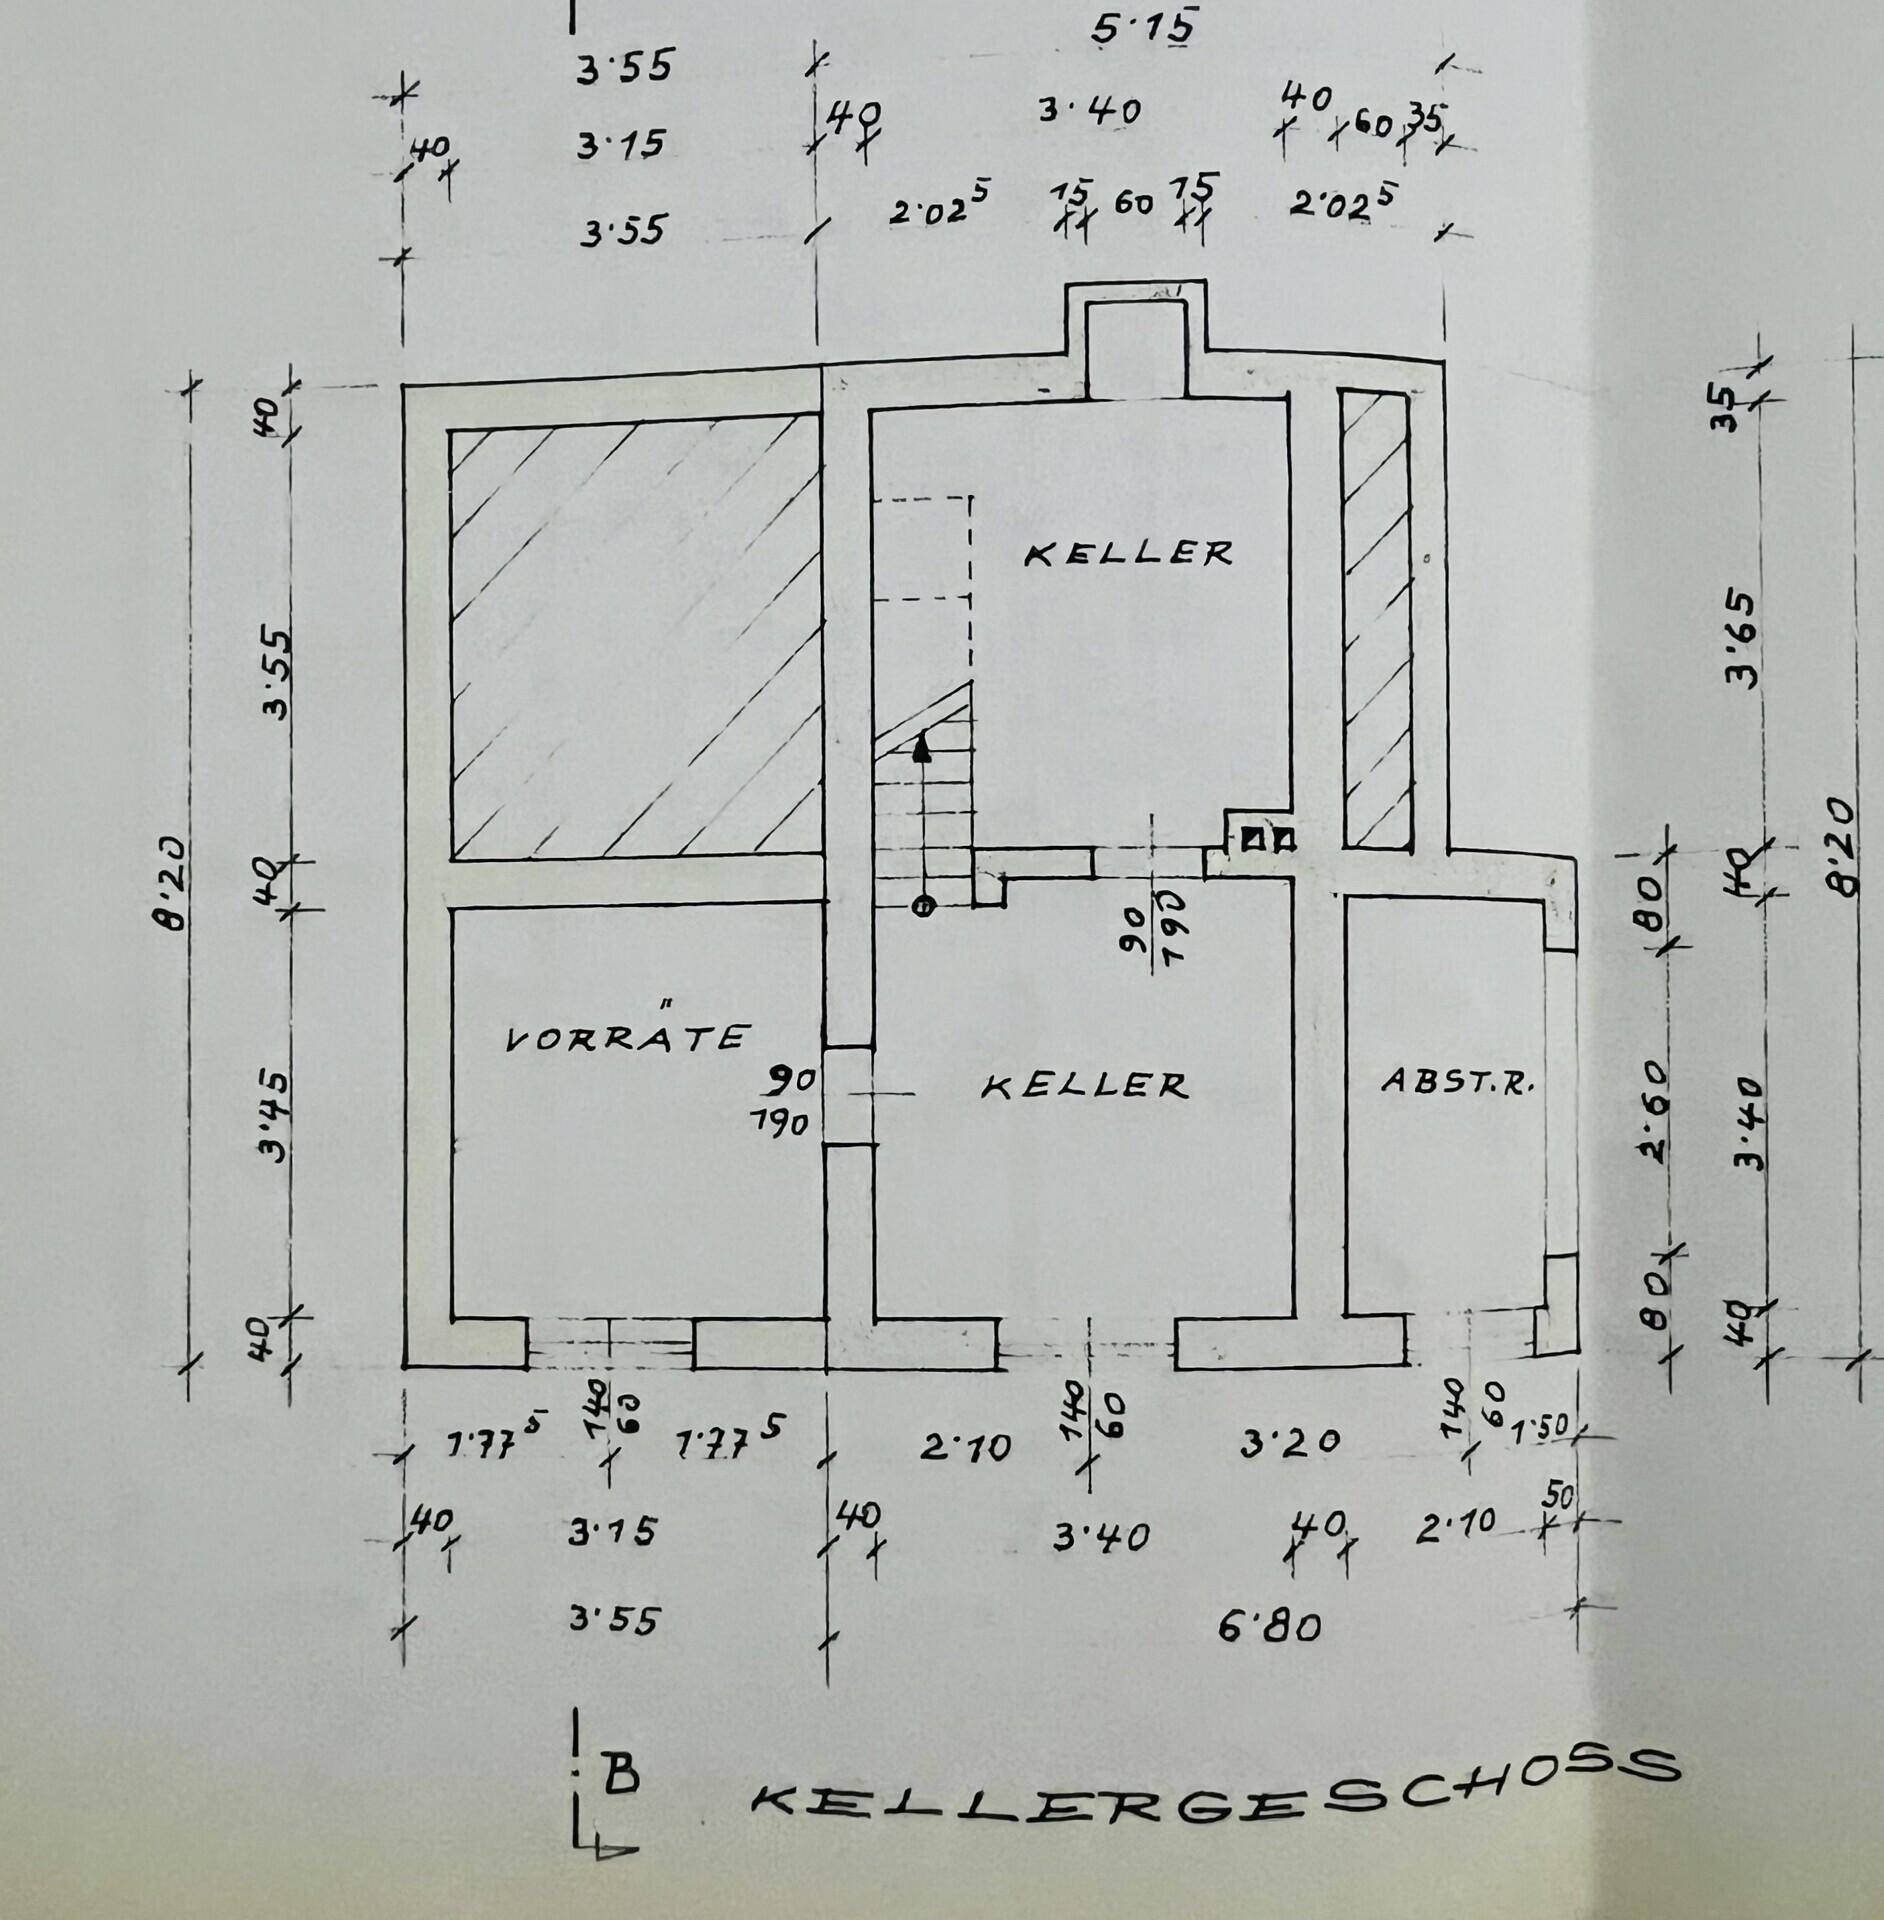 5·15
3·55
40 3·40 40 60 35
40 3·15
2·02⁵ 15 60 15 2·02⁵
3·55
40
35
KELLER
3·55
3·65
8·20
40
80
40
8·20
90
190
VORRÄTE
90
190
KELLER
ABST.R.
3·45
2·60
3·40
40
80
40
1·77⁵ 140 60 1·77⁵ 2·10 140 60 3·20 140 60 1·50
40 3·15 40 3·40 40 2·10 50
3·55 6·80
B
KELLERGESCHOSS